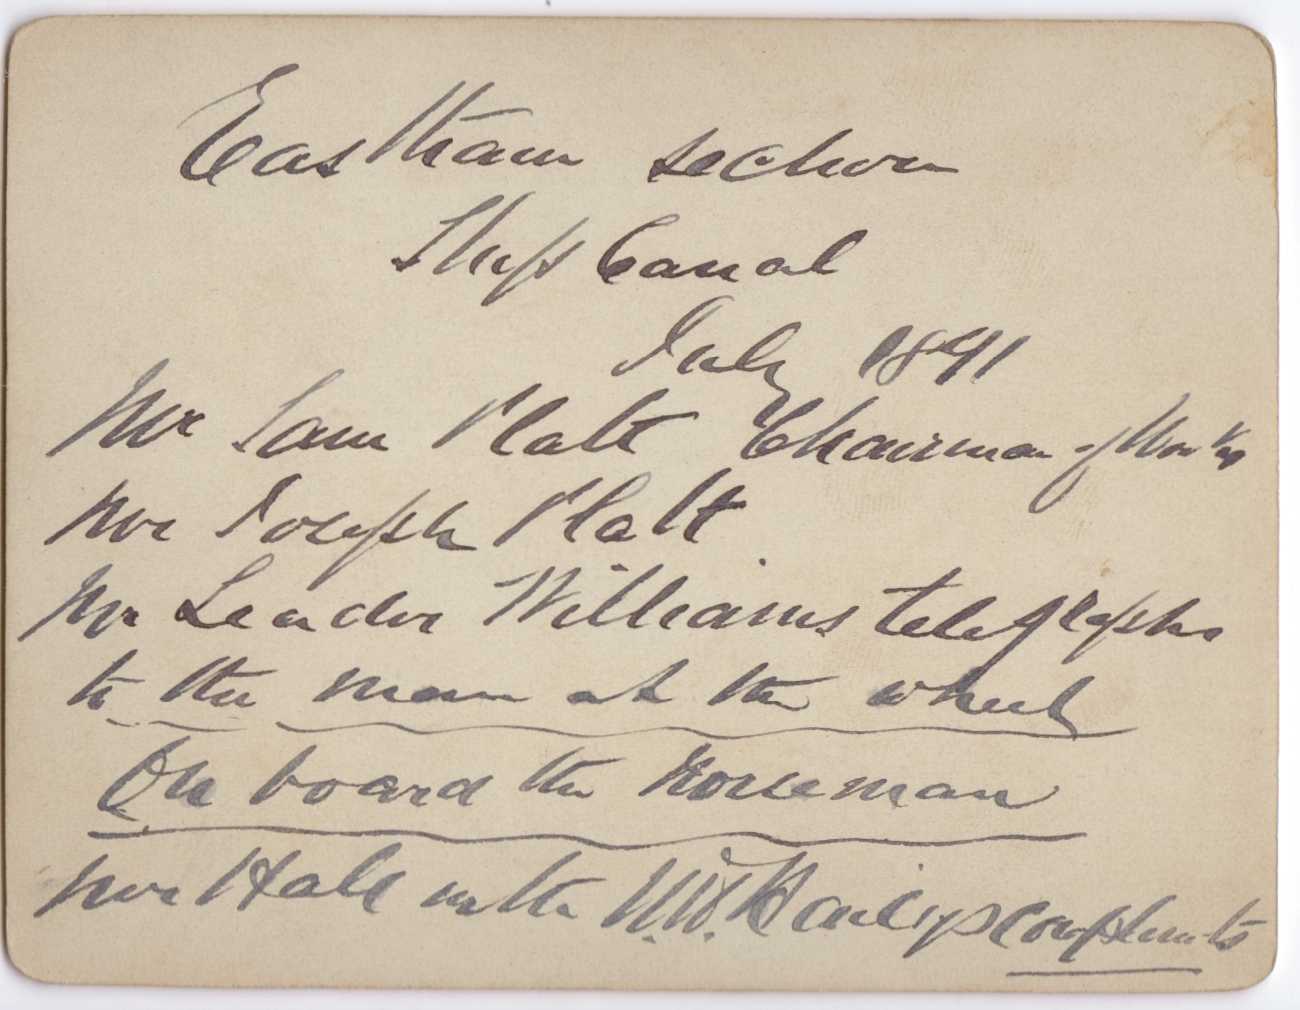 Eastham section
Ship Canal
July 1891
Mr Sam Platt Chairman of Works
Mr Joseph Platt
Mr Leader Williams telegraphs
to the man at the wheel
On board the Norseman
Mr Hall with W.W. compliments